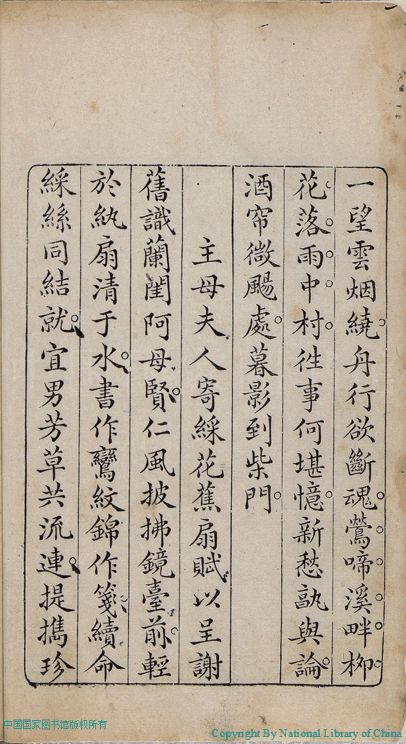 一望雲烟繞舟行欲斷魂鶯啼溪畔柳
花落雨中村徃事何堪憶新愁訙與論
酒帘微颺處暮影到柴門
主母夫人寄綵花蕉扇賦以呈謝
舊識蘭閨阿母賢仁風披拂鏡臺前輕
於紈扇清于水書作鸞紋錦作箋續命
綵絲同結就宜男芳草共流連提攜珍
中国国家图书馆版权所有
Copyright By National Library of China